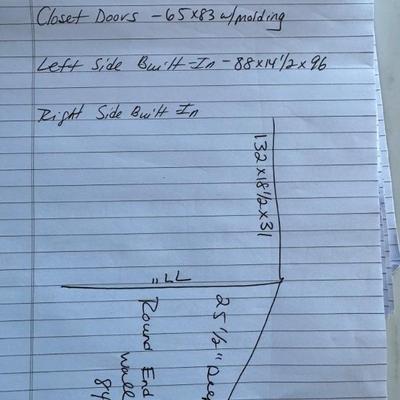 Closet Doors - 65x83 w/molding
Left Side Built-In - 88x14 1/2 x 96
Right Side Built In
132x18 1/2 x 31
77"
25 1/2" Deep
Round End
Wall